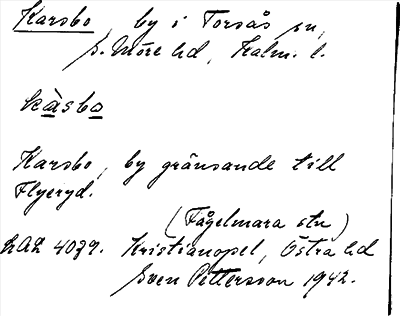 Karsbo, by i Torsås sn,
S. Möre hd, Kalm. l.
kàsbo
Karsbo, by gränsande till
Flyeryd.
(Fågelmara stn)
LAL 4039. Kristianopel, Östra hd
Sven Pettersson 1942.